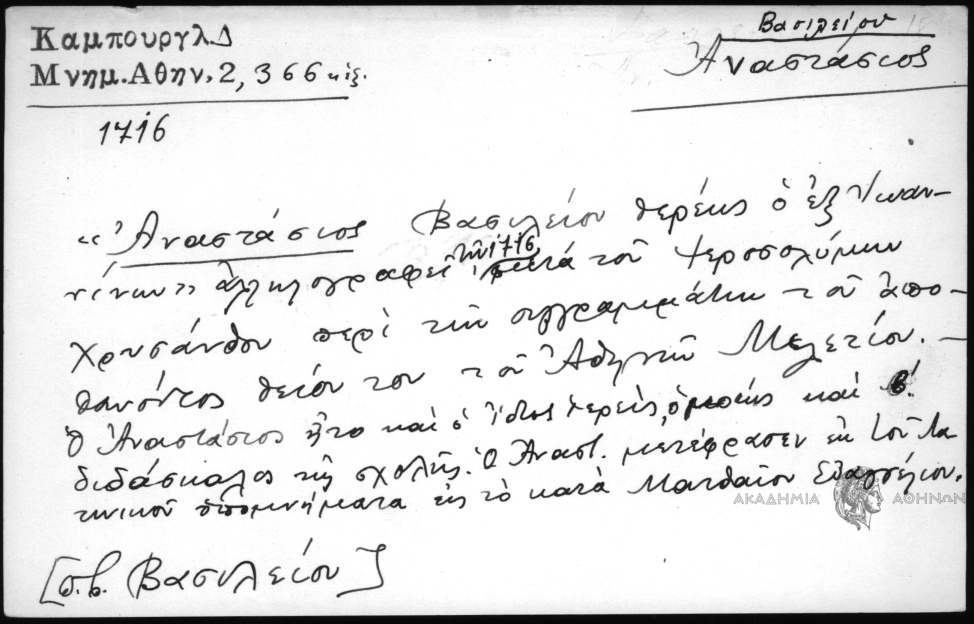 Καμπουργλ.Δ
Μνημ.Αθην.2, 366 κἑξ.
1716
Βασιλείου
Ἀναστάσιος
«Ἀναστάσιος Βασιλείου ἱερεὺς ὁ ἐξ Ἰωαν-
νίνων» ἀλληλογραφεῖ τῷ 1716 μετὰ τοῦ Ἱεροσολύμων
Χρυσάνθου περὶ τῶν συγγραμμάτων τοῦ ἀπο-
θανόντος θείου του τοῦ Ἀθηνῶν Μελετίου. –
Ὁ Ἀναστάσιος ἦτο καὶ ὁ ἴδιος ἱερεὺς, καὶ β.
διδάσκαλος τῆς σχολῆς. Ὁ Ἀναστ. μετέφρασεν ἐκ τοῦ λα
τινικοῦ ὑπομνήματα εἰς τὸ κατὰ Ματθαῖον Εὐαγγέλιον.
ΑΚΑΔΗΜΙΑ ΑΘΗΝΩΝ
[σ.β. Βασιλείου]